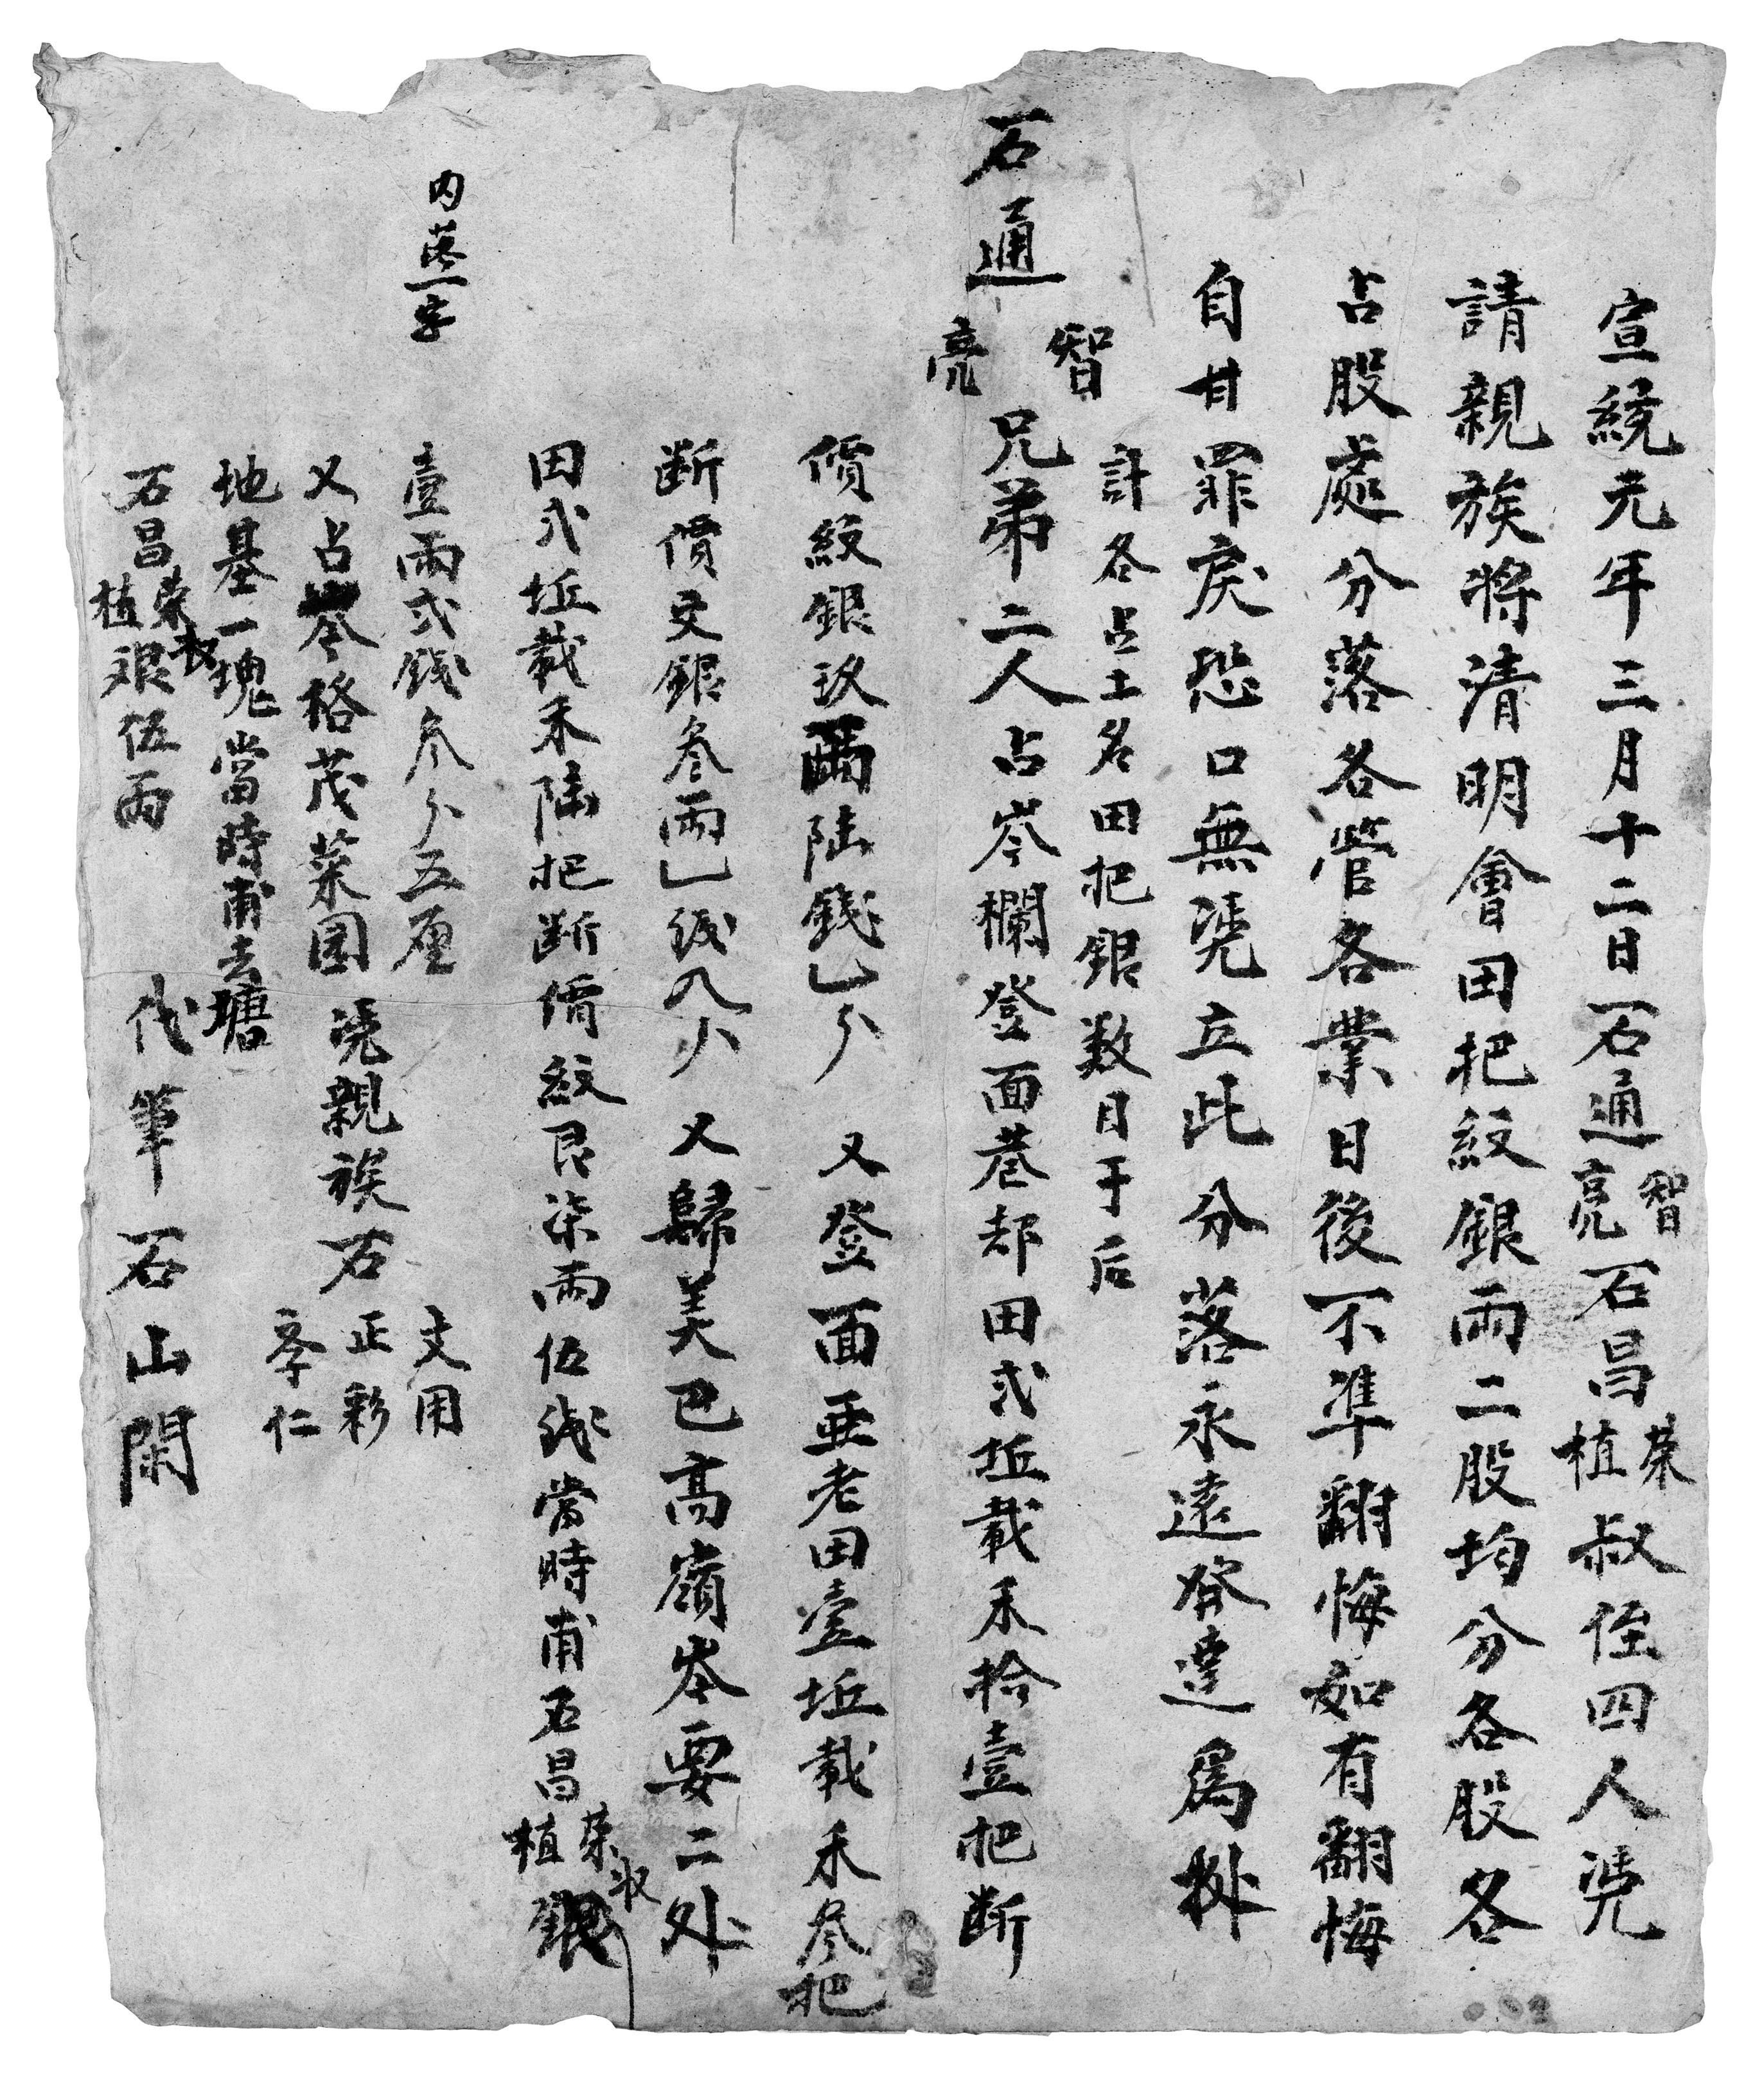 宣統元年三月十二日石通智亮石昌荣植叔侄四人凴
請親族將清明會田把紋銀兩二股均分各股各
占股處分落各管各業日後不凖翻悔如有翻悔
自甘罪戾恐口無凴立此分落永遠發達爲㨿
計各占土名田把銀数目于后
石通智亮兄弟二人占岺欄登面巷却田弍坵載禾拾壹把断
價紋銀玖兩陆錢乚分 又登面亜老田壹坵載禾叁把
断價文銀叁兩乚錢八分 又歸美巴高嶺岑要二处
田弍坵載禾陆把断價紋艮柒兩伍錢當時甫石昌荣植收銀
壹兩弍錢叁分五厘
内落一字
又占岺格茂菜园 凴親族石文用正彩孝仁
地基一塊當時甫去塘
石昌荣植收艮伍兩 代筆石山開